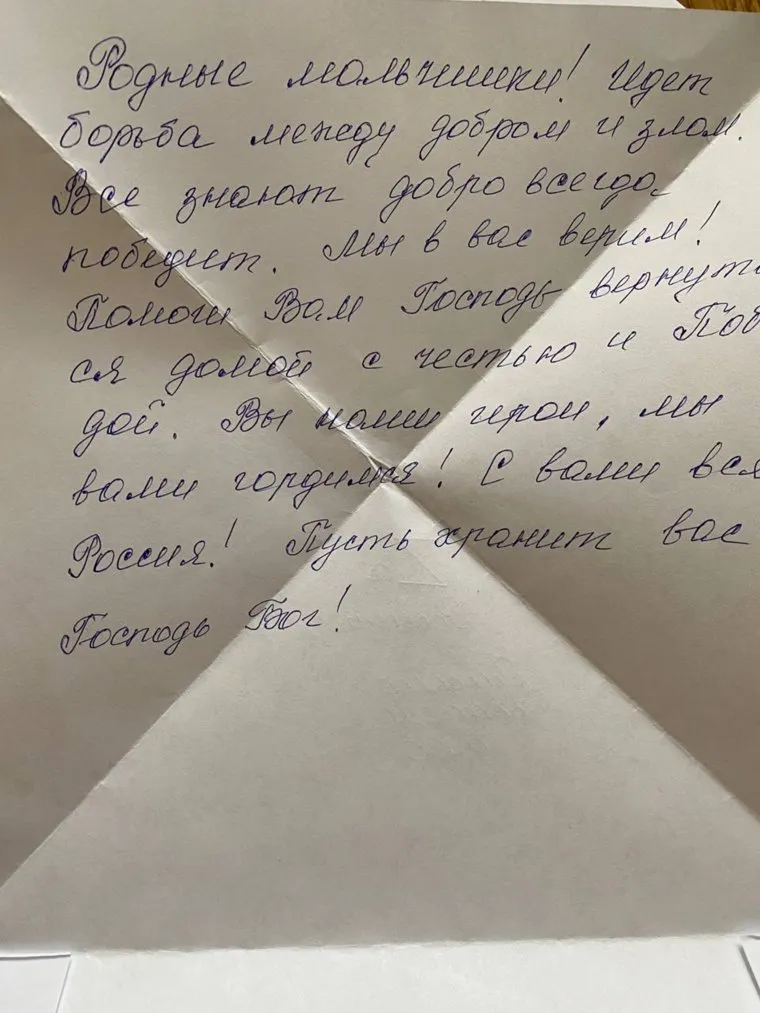 Родные мальчишки! Идет
борьба между добром и злом.
Все знают добро всегда
победит. Мы в вас верим!
Помоги Вам Господь вернуть
ся домой с честью и Поб
дой. Вы наши герои, мы
вами гордимся! С вами вся
Россия! Пусть хранит вас
Господь Бог!